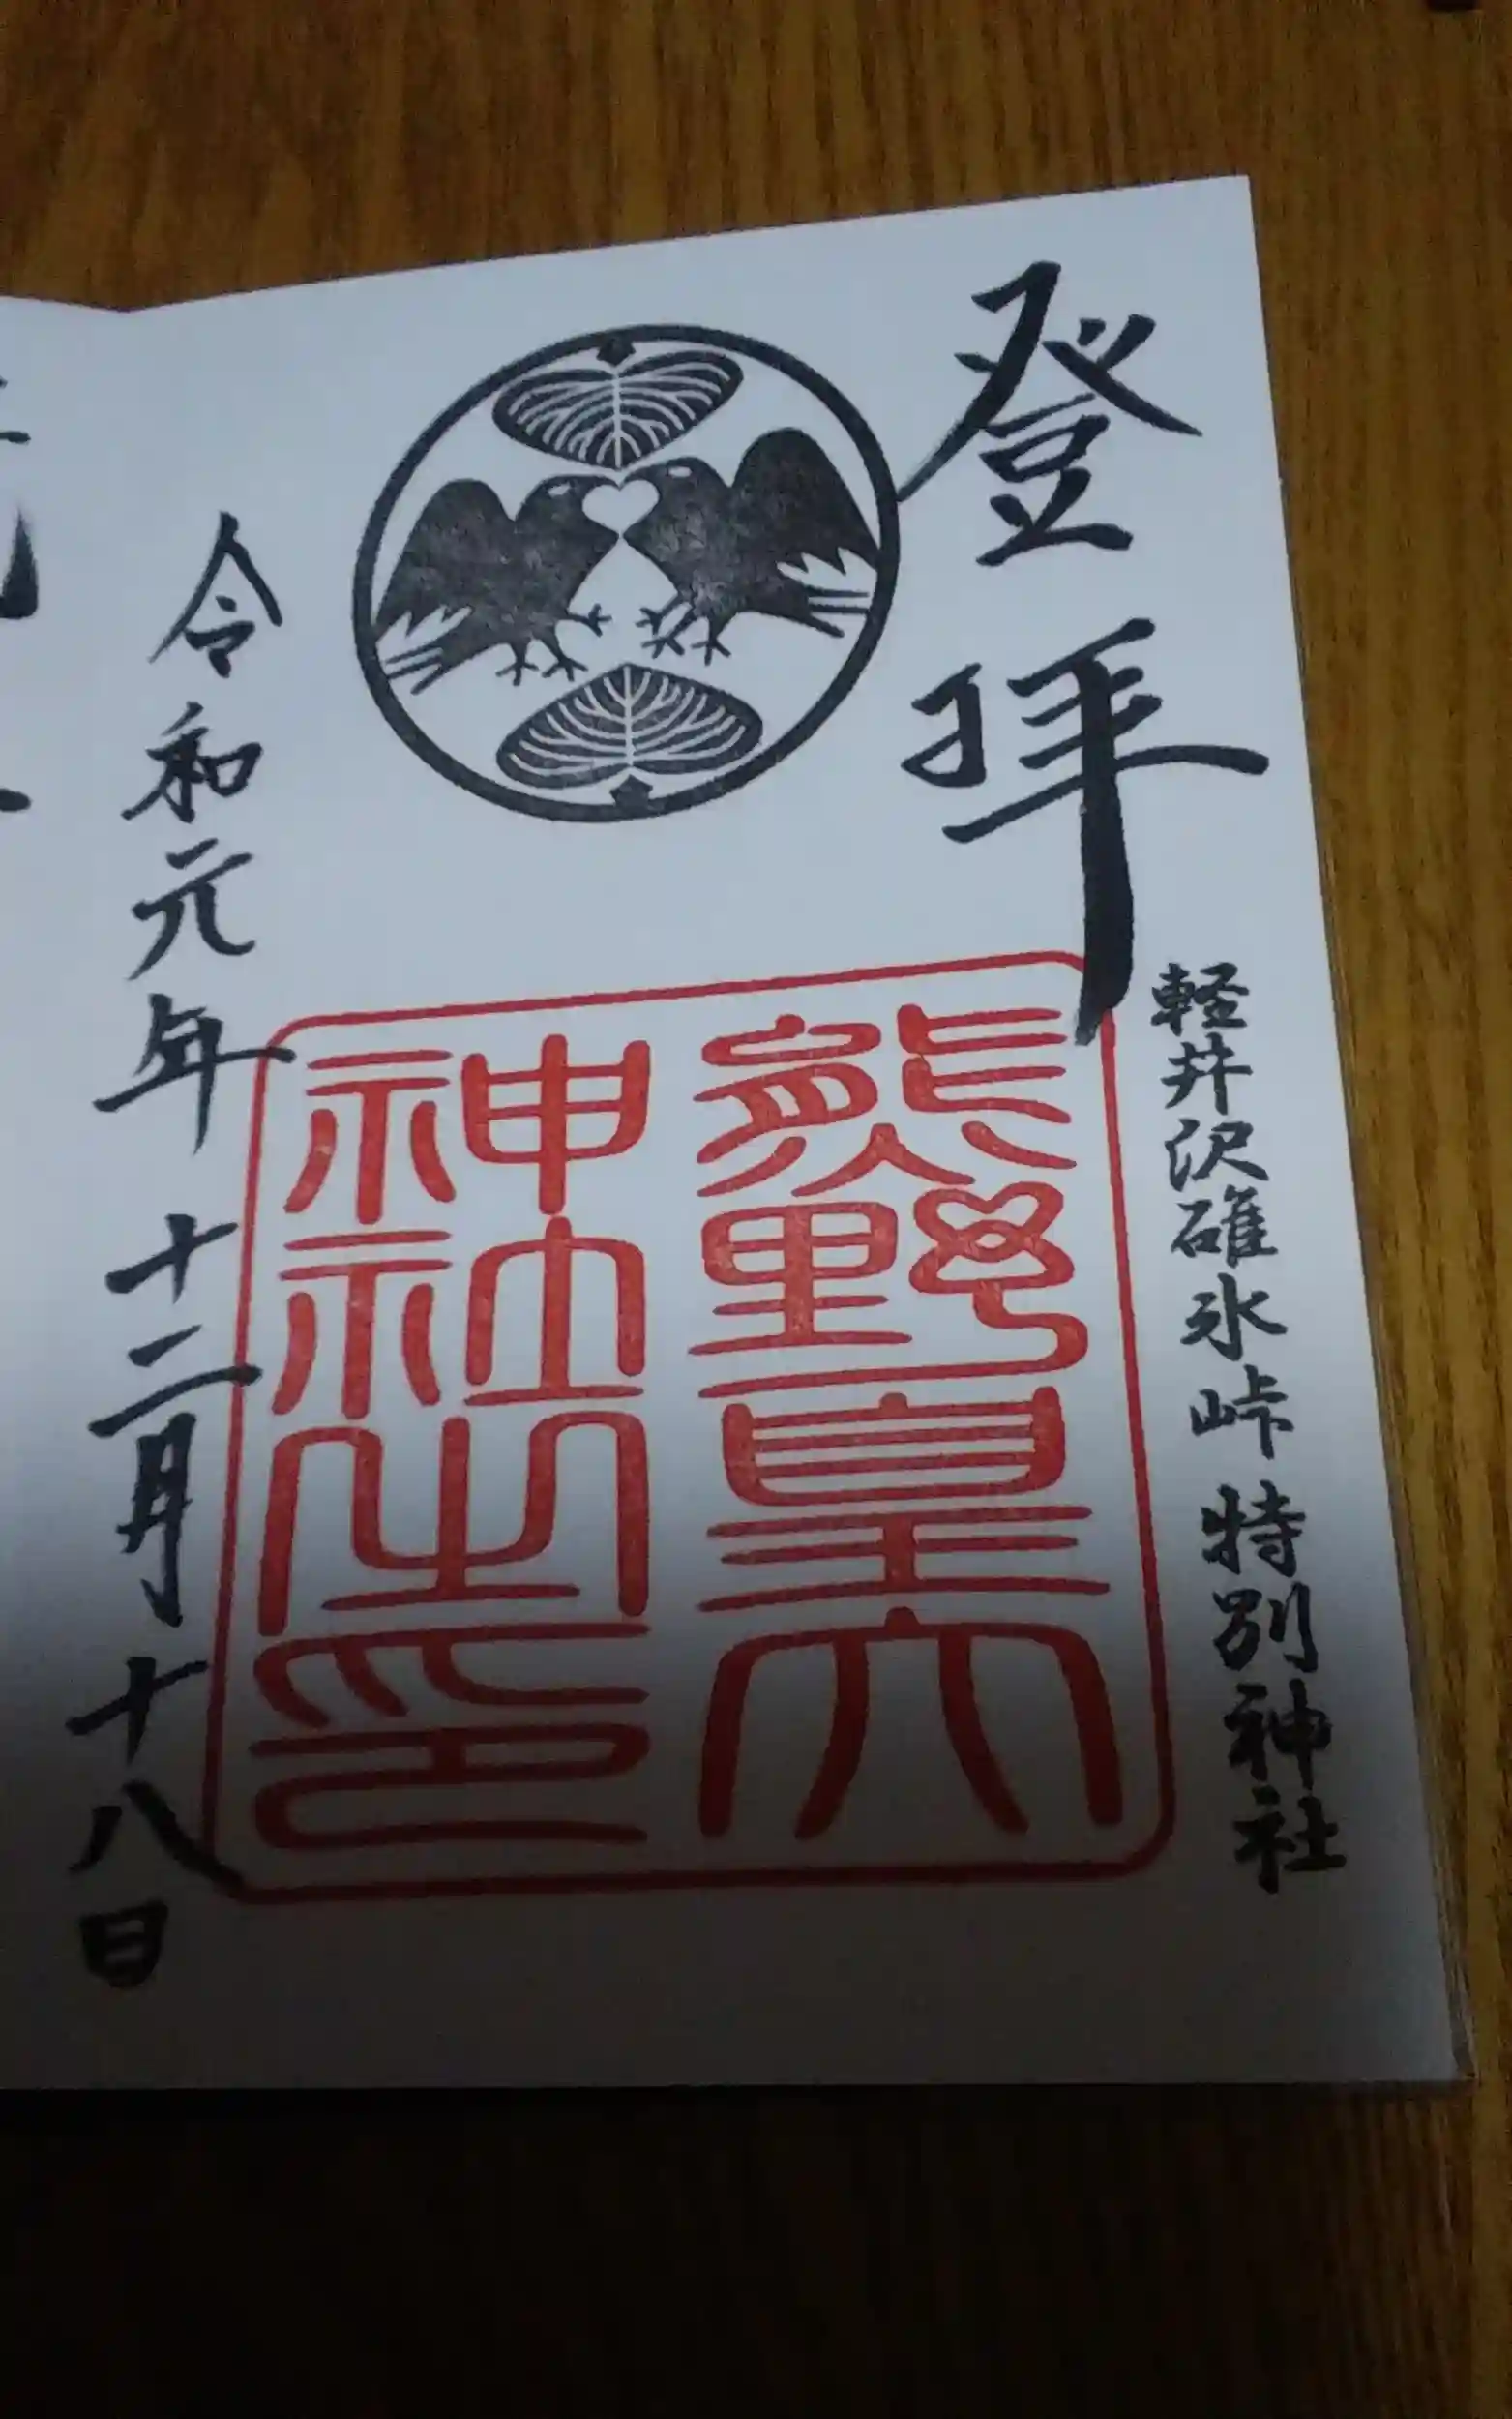 登拝
軽井沢碓氷峠 特別神社
熊野皇大
神社之印
令和元年 十二月十八日